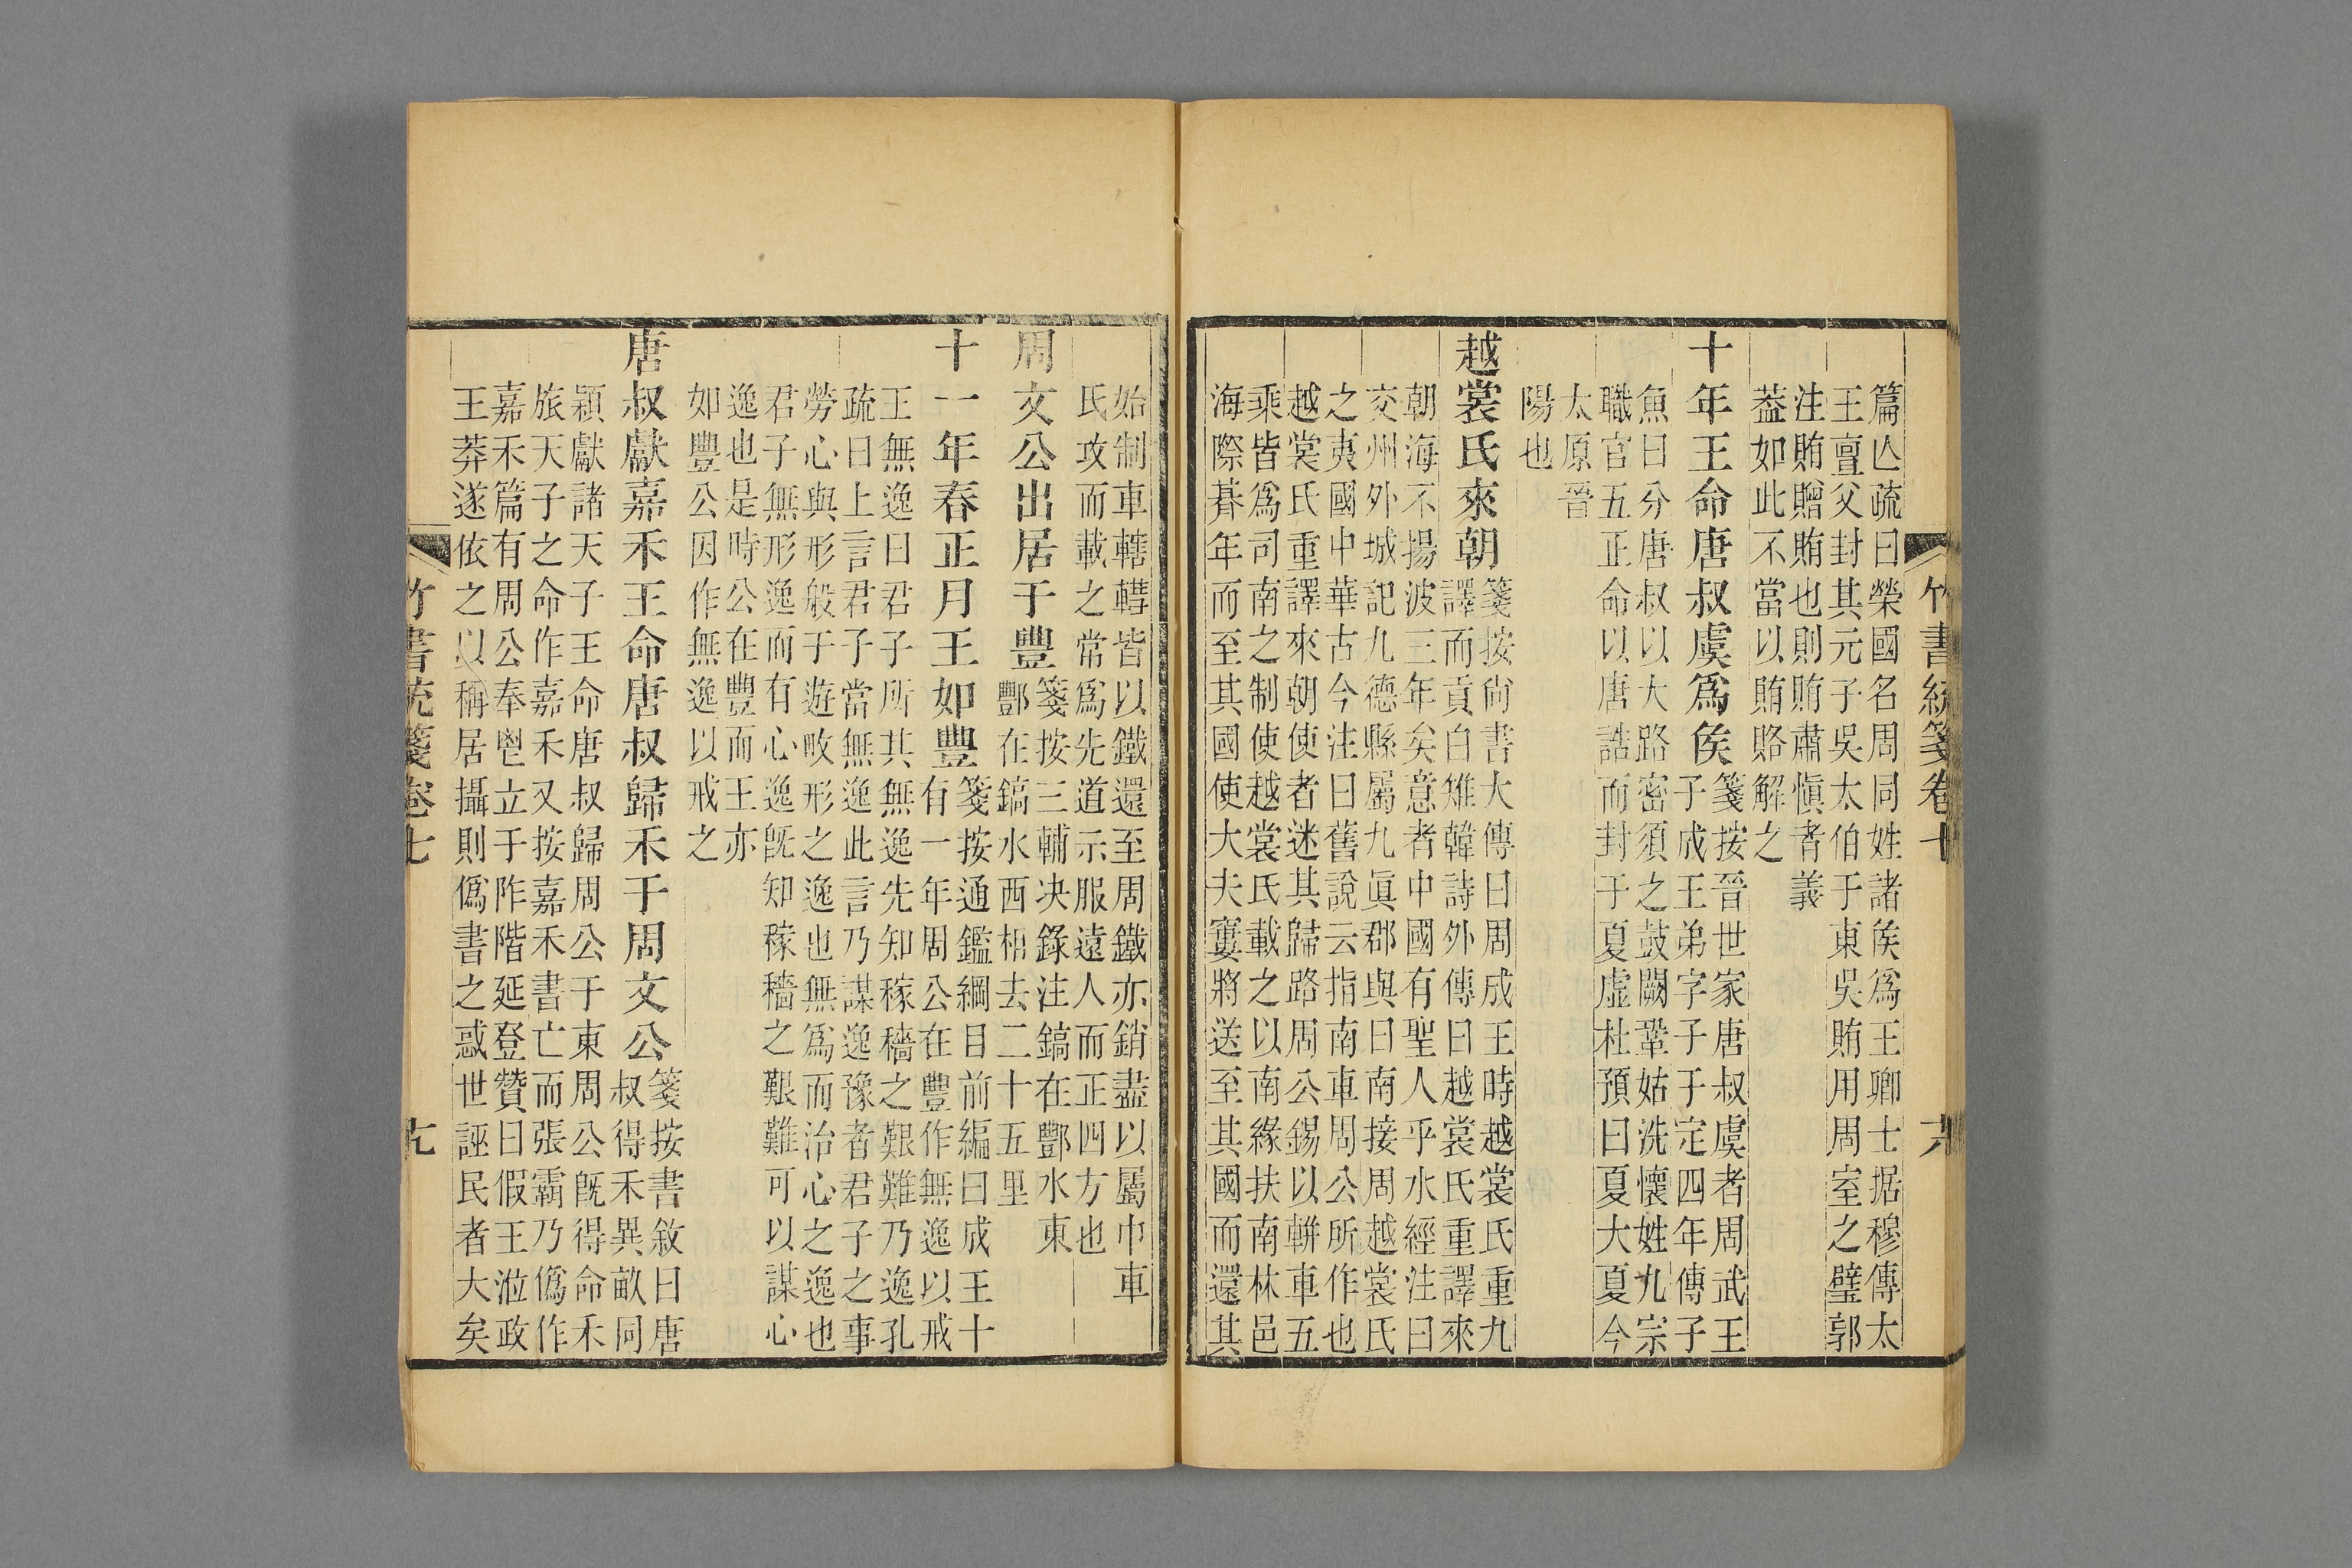 竹書統箋卷七
六
篇亾疏曰榮國名周同姓諸侯爲王卿士据穆傳太
王亶父封其元子吳太伯于東吳賄用周室之璧郭
注賄贈賄也則賄肅慎者義
葢如此不當以賄賂解之
十年王命唐叔虞爲侯
箋按晉世家唐叔虞者周武王
子成王弟字子于定四年傳子
魚曰分唐叔以大路密須之鼓闕鞏姑洗懷姓九宗
職官五正命以唐誥而封于夏虛杜預曰夏大夏今
太原晉
陽也
越裳氏來朝
箋按尙書大傳曰周成王時越裳氏重九
譯而貢白雉韓詩外傳曰越裳氏重譯來
朝海不揚波三年矣意者中國有聖人乎水經注曰
交州外城記九德縣屬九眞郡與曰南接周越裳氏
之夷國中華古今注曰舊說云指南車周公所作也
越裳氏重譯來朝使者迷其歸路周公錫以輧車五
乘皆爲司南之制使越裳氏載之以南緣扶南林邑
海際朞年而至其國使大夫窶將送至其國而還其
始制車轄轊皆以鐵還至周鐵亦銷盡以屬巾車
氏攻而載之常爲先道示服遠人而正四方也
周文公出居于豐
箋按三輔决錄注鎬在酆水東
酆在鎬水西相去二十五里
十一年春正月王如豐
箋按通鑑綱目前編曰成王十
有一年周公在豐作無逸以戒
王無逸曰君子所其無逸先知稼穡之艱難乃逸孔
疏曰上言君子當無逸此言乃謀逸豫者君子之事
勞心與形般于遊畋形之逸也無爲而治心之逸也
君子無形逸而有心逸旣知稼穡之艱難可以謀心
逸也是時公在豐而王亦
如豐公因作無逸以戒之
唐叔獻嘉禾王命唐叔歸禾于周文公
箋按書敘曰唐
叔得禾異畝同
穎獻諸天子王命唐叔歸周公于東周公旣得命禾
旅天子之命作嘉禾又按嘉禾書亡而張霸乃僞作
嘉禾篇有周公奉鬯立于阼階延登贊曰假王涖政
王莽遂依之以稱居攝則僞書之惑世誣民者大矣
竹書統箋卷七